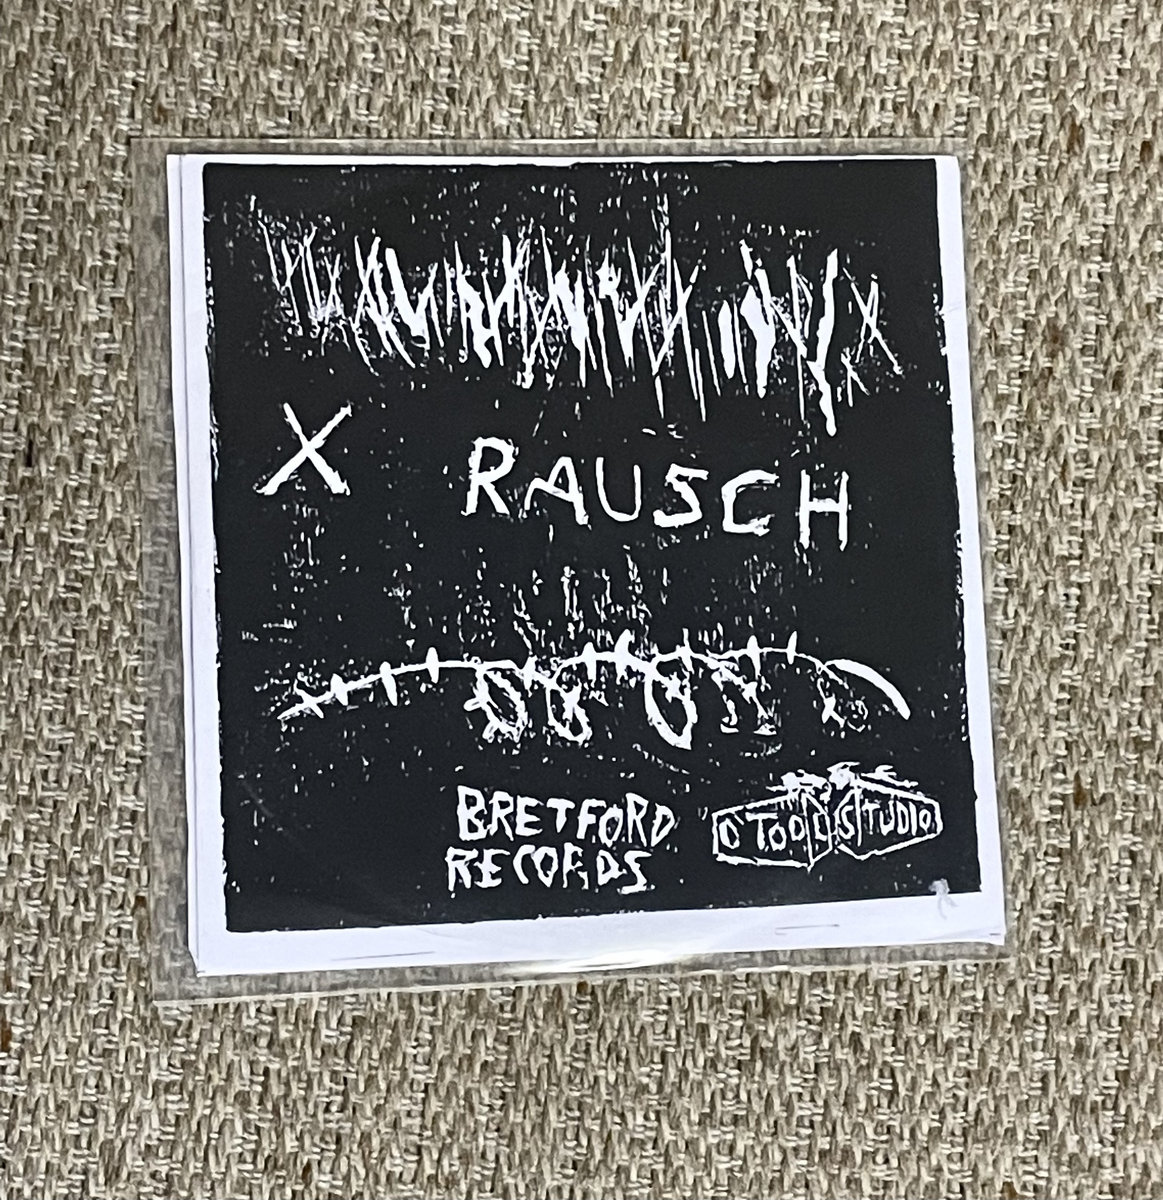 X RAUSCH
BRETFORD
RECORDS
O'TOOLSTUDIO